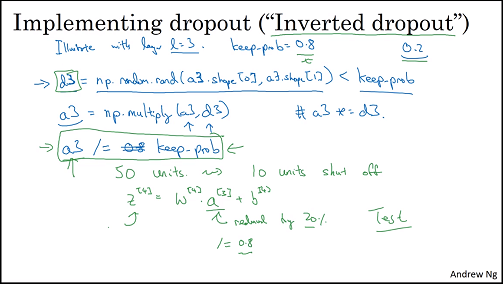 Implementing dropout (“Inverted dropout”)
Illustrate with layer l=3. keep-prob = 0.8 0.2
→ d3 = np.random.rand(a3.shape[0], a3.shape[1]) < keep-prob
a3 = np.multiply(a3, d3) # a3 *= d3.
→ a3 /= keep-prob ←
50 units. ⇝ 10 units shut off
z^[4] = W^[4] · a^[3] + b^[4]
reduced by 20% Test
/= 0.8
Andrew Ng